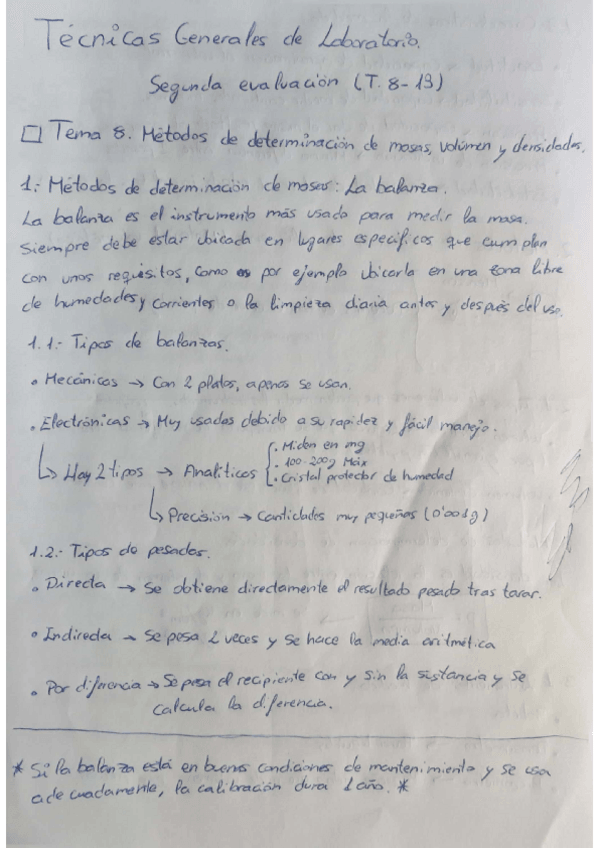 Técnicas Generales de Laboratorio.
Segunda evaluación (T. 8-13)
□ Tema 8. Métodos de determinación de masas, volúmen y densidades.
1.- Métodos de determinación de masas: La balanza.
La balanza es el instrumento más usado para medir la masa.
Siempre debe estar ubicada en lugares específicos que cumplan
con unos requisitos, como por ejemplo ubicarla en una zona libre
de humedades y corrientes o la limpieza diaria antes y después del uso.
1.1.- Tipos de balanzas.
• Mecánicas → Con 2 platos, apenas se usan.
• Electrónicas → Muy usadas debido a su rapidez y fácil manejo.
↳ Hay 2 tipos → Analíticas { • Miden en mg
- 100-200g Máx
• Cristal protector de humedad
↳ Precisión → Cantidades muy pequeñas (0'001g)
1.2.- Tipos de pesadas.
• Directa → Se obtiene directamente el resultado pesado tras tarar.
• Indirecta → Se pesa 2 veces y se hace la media aritmética
• Por diferencia → Se pesa el recipiente con y sin la sustancia y se
calcula la diferencia.
* Si la balanza está en buenas condiciones de mantenimiento y se usa
adecuadamente, la calibración dura 1 año. *